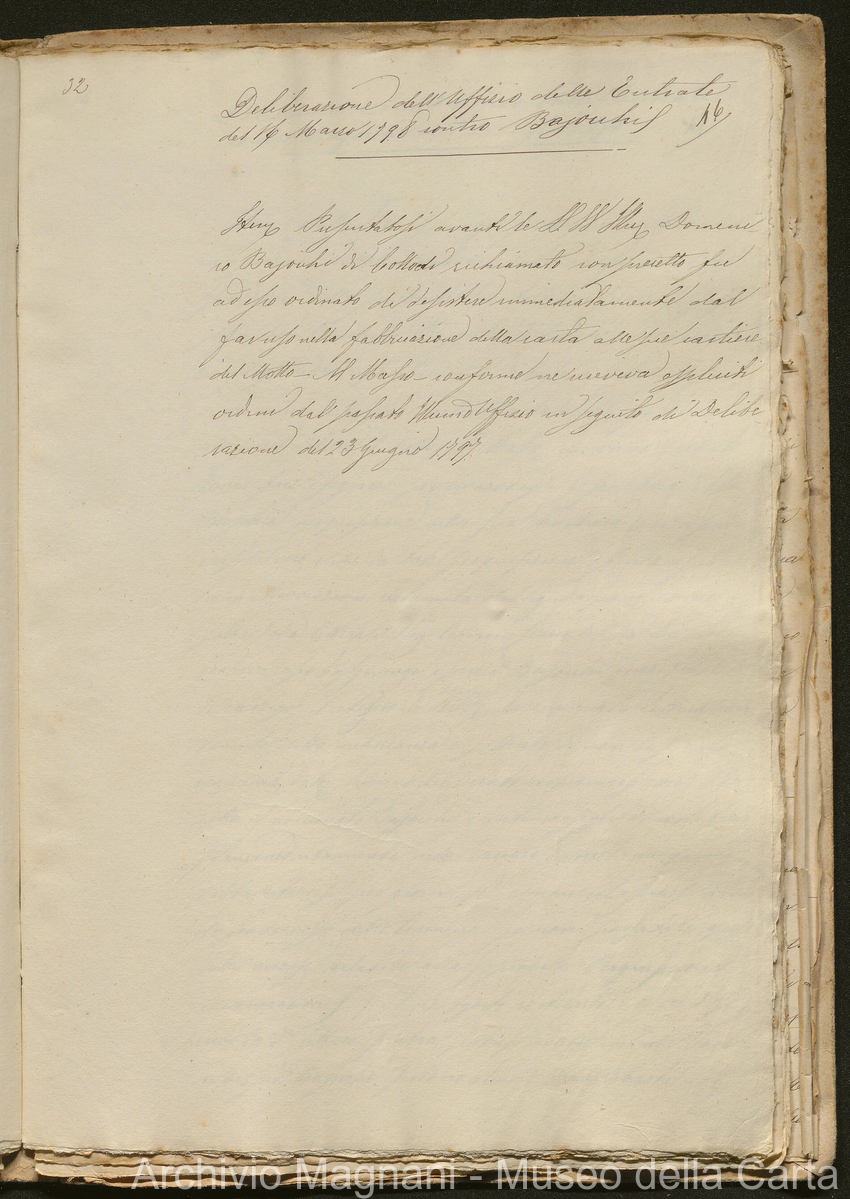 32
Deliberazione dell'Uffizio delle Entrate
del 16 Marzo 1798 contro Bajouchi
16
Item Presentatosi avanti le LL SS Domeni
co Bajouchi di Collodi richiamato con precetto fu
ad esso ordinato di desistere immediatamente dal
far uso nella fabbricazione della carta alle sue cartiere
del Motto Al Masso conforme ne riceveva espliciti
ordini dall passato Uffizio in seguito di Delibe-
razione del 23 Giugno 1797.
Archivio Magnani - Museo della Carta